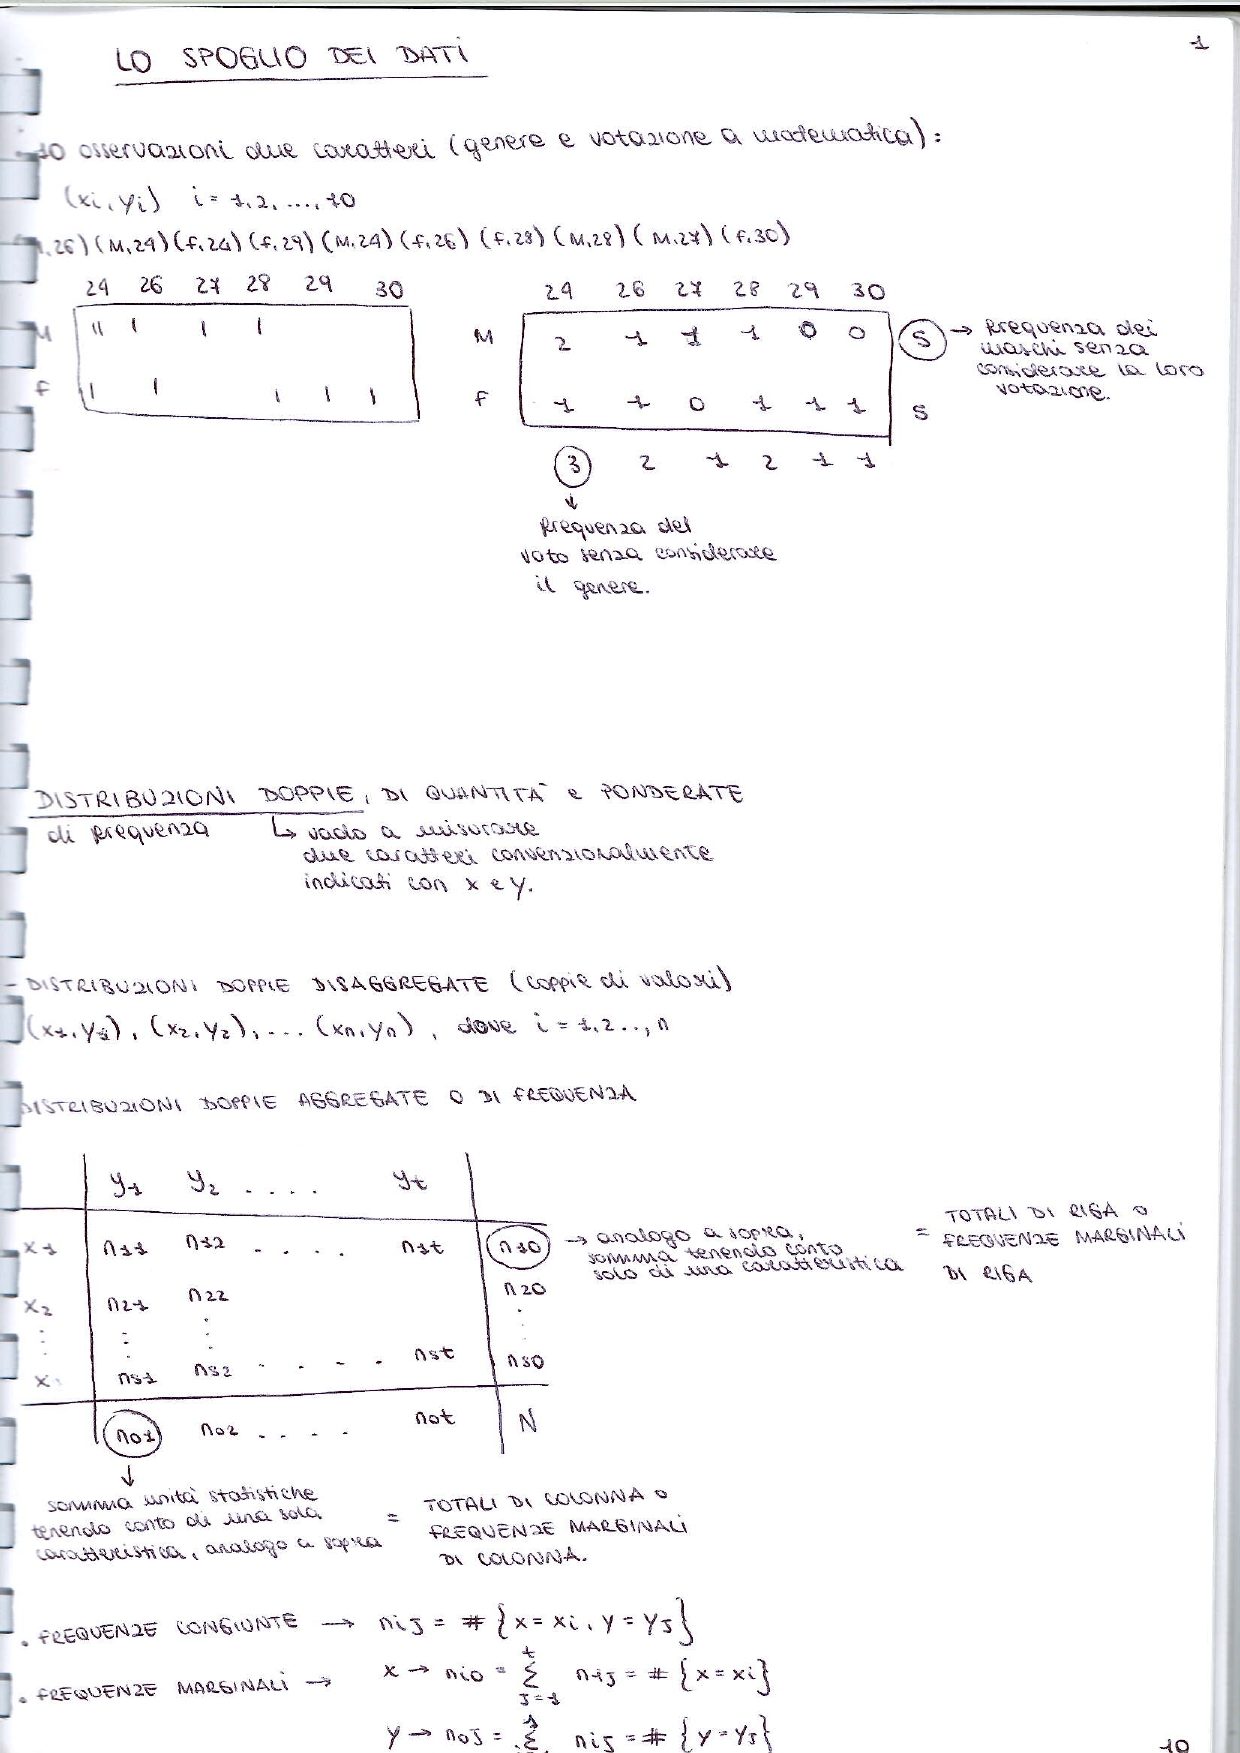 1
LO SPOGLIO DEI DATI
10 osservazioni due caratteri (genere e votazione a matematica):
(xi, yi) i = 1,2, ..., 10
,26) (M,24) (f,24) (f,29) (M,24) (f,26) (f,28) (M,28) (M,27) (f,30)
24 26 27 28 29 30
M
F
24 26 27 28 29 30
M 2 1 1 1 0 0 5 → frequenza dei
maschi senza
considerare la loro
votazione.
F 1 1 0 1 1 1 5
3 2 1 2 1 1
↓
frequenza del
voto senza considerare
il genere.
DISTRIBUZIONI DOPPIE, DI QUANTITÀ e PONDERATE
di frequenza ↳ vado a misurare
due caratteri convenzionalmente
indicati con x e y.
- DISTRIBUZIONI DOPPIE DISAGGREGATE (coppie di valori)
(x1, y1), (x2, y2), ... (xn, yn), dove i = 1,2 .., n
DISTRIBUZIONI DOPPIE AGGREGATE O DI FREQUENZA
y1 y2 .... yt
x1 n11 n12 .... n1t n10 → analogo a sopra,
somma tenendo conto
solo di una caratteristica
= TOTALI DI RIGA O
FREQUENZE MARGINALI
DI RIGA
x2 n21 n22 n20
x ns1 ns2 .... nst ns0
n01 n02 .... n0t N
↓
somma unità statistiche
tenendo conto di una sola
caratteristica, analogo a sopra
= TOTALI DI COLONNA O
FREQUENZE MARGINALI
DI COLONNA.
. FREQUENZE CONGIUNTE → nij = # {x = xi, y = yj}
. FREQUENZE MARGINALI → x → ni0 = Σ t j=1 nij = # {x = xi}
y → n0j = Σ nij = # {y = yj}
10